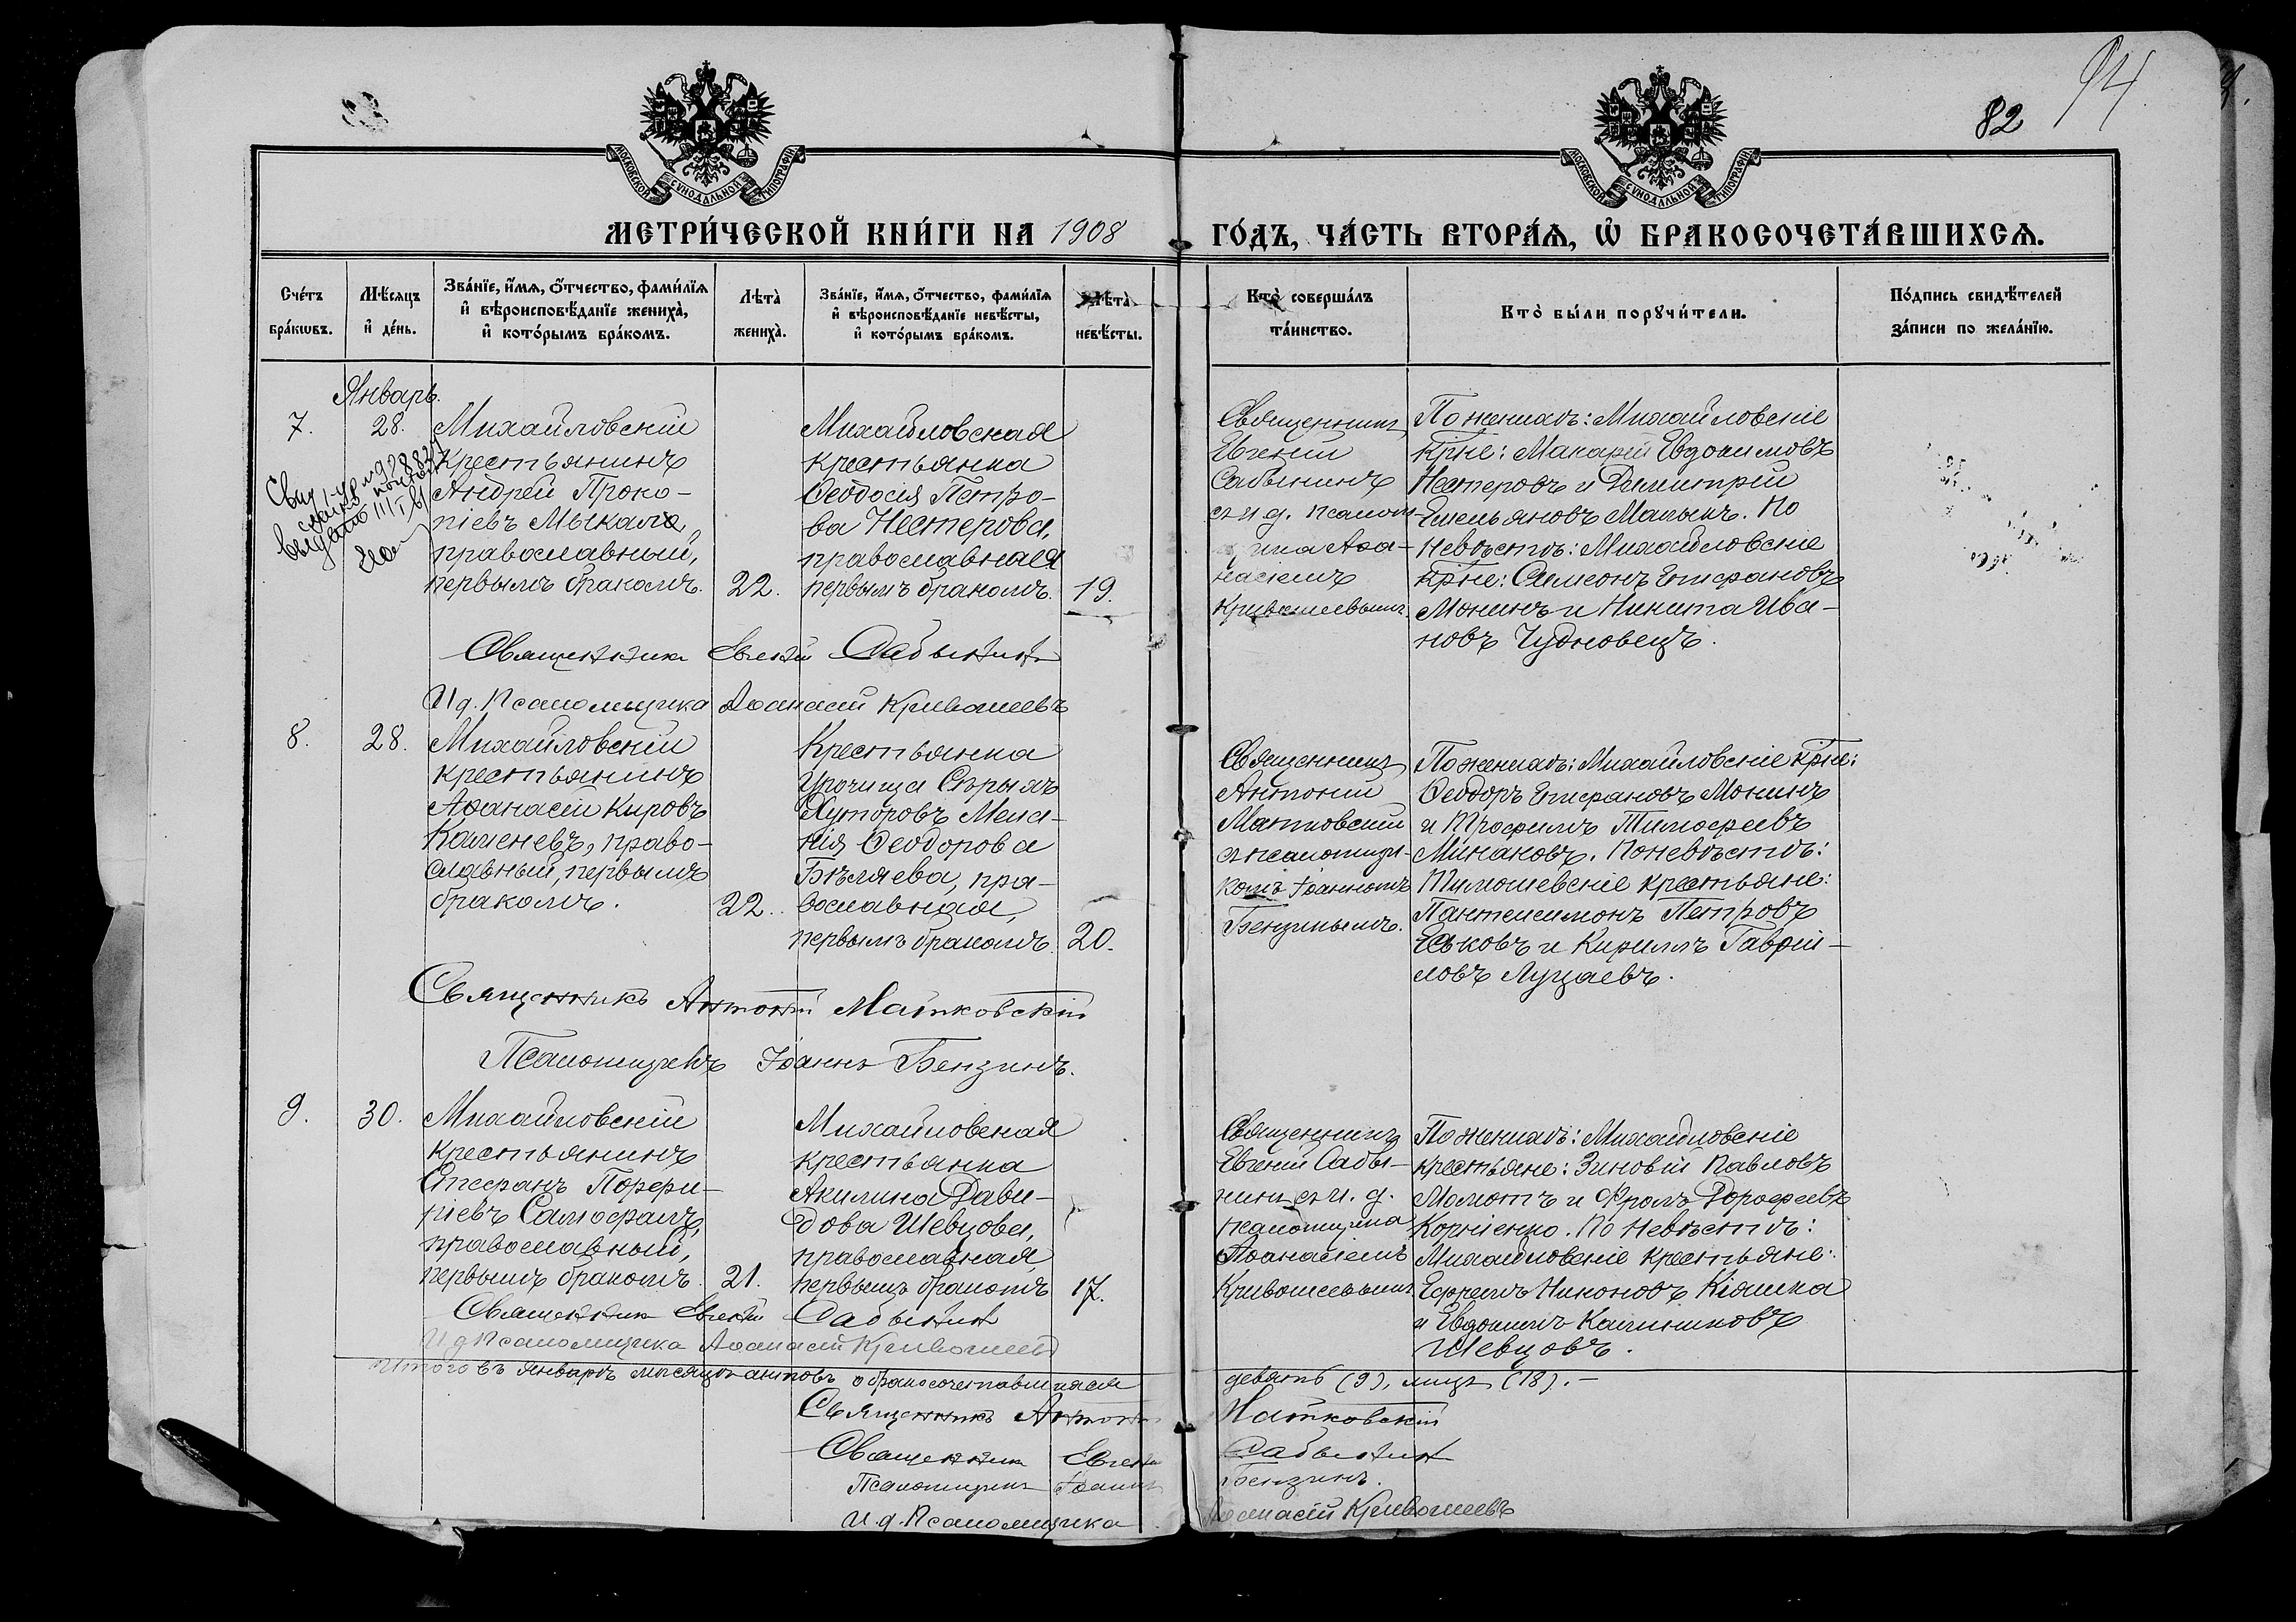 82
94
МОСКОВСКОЙ СѴНОДАЛЬНОЙ ТИПОГРАФІИ
МОСКОВСКОЙ СѴНОДАЛЬНОЙ ТИПОГРАФІИ
МЕТРИ́ЧЕСКОЙ КНИ́ГИ НА 1908 ГО́ДЪ, ЧА́СТЬ ВТОРА́Ѧ, Ѡ҆ БРАКОСОЧЕТА́ВШИХСѦ.
Сче́тъ бра́кѡвъ.
Мѣ́сѧцъ и҆ де́нь.
Зва́нїе, и҆́мѧ, ѻ҆́тчество, фами́лїѧ
и҆ вѣроисповѣ́данїе жениха̀,
и҆ кото́рымъ бра́комъ.
Лѣта̀ жениха̀.
Зва́нїе, и҆́мѧ, ѻ҆́тчество, фами́лїѧ
и҆ вѣроисповѣ́данїе невѣ́сты,
и҆ кото́рымъ бра́комъ.
Лѣта̀ невѣ́сты.
Кто̀ соверша́лъ
та́инство.
Кто̀ бы́ли порꙋчи́тели.
По́дпись свидѣ́телей
за́писи по жела́нїю.
Январь.
7.
28.
Михайловскій
крестьянинъ
Андрей Проко-
піевъ Мыкало,
православный,
первымъ бракомъ.
22.
Михайловская
крестьянка
Ѳеодосія Петро-
ва Нестерова,
православная
первымъ бракомъ.
19.
Священникъ
Евгеній
Сабынинъ
съ и. д. псалом-
щика Аѳа-
насіемъ
Кривошеевымъ.
По женихѣ: Михайловскіе
кр̃не: Макарій Евдокимовъ
Нестеровъ и Димитрій
Емельяновъ Малыхъ. По
невѣстѣ: Михайловскіе
кр̃не: Симеонъ Епифановъ
Монинъ и Никита Ива-
новъ Чудновецъ.
Священникъ Евгеній Сабынинъ
И. д. Псаломщика Аѳанасій Кривошеевъ
8.
28.
Михайловскій
крестьянинъ
Аѳанасій Кировъ
Каменевъ, право-
славный, первымъ
бракомъ.
22.
Крестьянка
Урочища Сѣрыхъ
Хуторовъ Мела-
нія Ѳеодорова
Бѣляева, пра-
вославная,
первымъ бракомъ.
20.
Священникъ
Антоній
Матковскій
съ псаломщи-
комъ Іоанномъ
Бензинымъ.
По женихѣ: Михайловскіе кр̃не:
Ѳеодоръ Епифановъ Монинъ
и Трофимъ Тимофеевъ
Минаковъ. По невѣстѣ:
Тимошевскіе крестьяне:
Пантелеимонъ Петровъ
Еськовъ и Кириллъ Гаврі-
ловъ Луцаевъ.
Священникъ Антоній Матковскій
Псаломщикъ Іоаннъ Бензинъ.
9.
30.
Михайловскій
крестьянинъ
Стефанъ Порфи-
ріевъ Самофалъ,
православный,
первымъ бракомъ.
21.
Михайловская
крестьянка
Акилина Дави-
дова Шевцова,
православная,
первымъ бракомъ
17.
Священникъ
Евгеній Сабы-
нинъ съ и. д.
псаломщика
Аѳанасіемъ
Кривошеевымъ
По женихѣ: Михайловскіе
крестьяне: Зиновій Павловъ
Момотъ и Фролъ Дорофеевъ
Корніенко. По невѣстѣ:
Михайловскіе крестьяне:
Ефремъ Никоновъ Кіяшка
и Евдокимъ Калинниковъ
Шевцовъ.
Священникъ Евгеній Сабынинъ
И. д. Псаломщика Аѳанасій Кривошеевъ
Итого въ январѣ мѣсяцѣ актовъ о бракосочетавшихся девять (9), лицъ (18).-
Священникъ Антоній Матковскій
Священникъ Евгеній Сабынинъ
Псаломщикъ Іоаннъ Бензинъ.
И. д. Псаломщика Аѳанасій Кривошеевъ